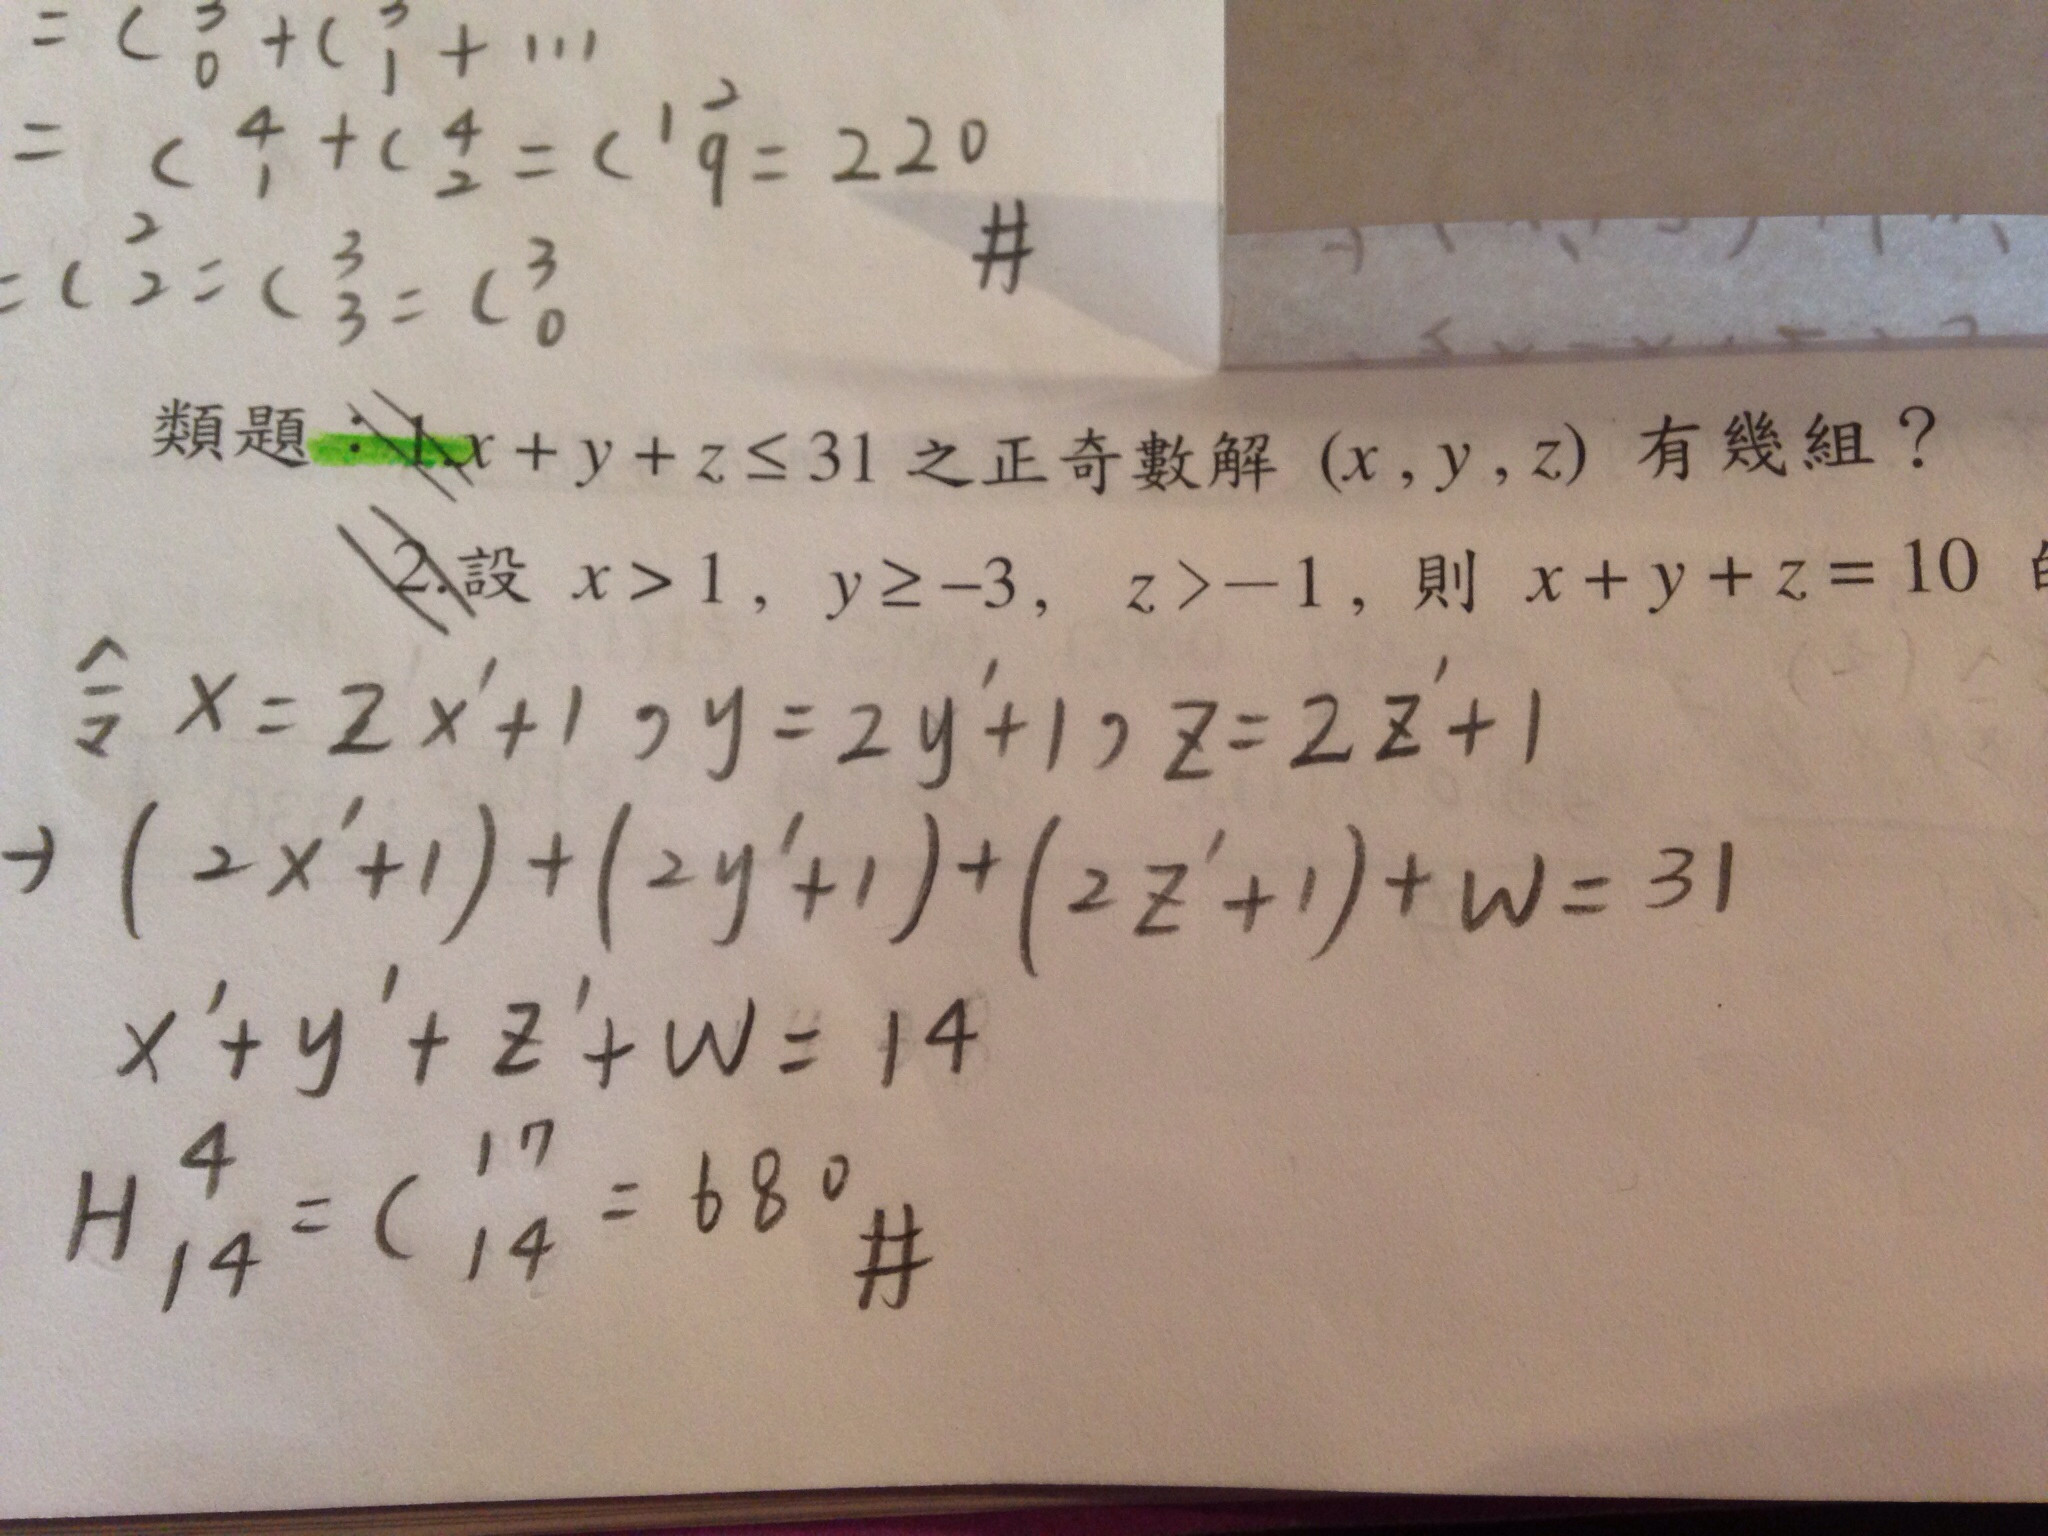 = C 3 0 + C 3 1 + ...
= C 4 1 + C 4 2 = C 12 9 = 220 #
= C 2 2 = C 3 3 = C 3 0
類題：1. x + y + z ≤ 31 之正奇數解 (x , y , z) 有幾組？
2. 設 x > 1 , y ≥ −3 , z > −1 , 則 x + y + z = 10
令 x = 2x′+1 , y = 2y′+1 , z = 2z′+1
→ (2x′+1) + (2y′+1) + (2z′+1) + w = 31
x′ + y′ + z′ + w = 14
H 4 14 = C 17 14 = 680 #